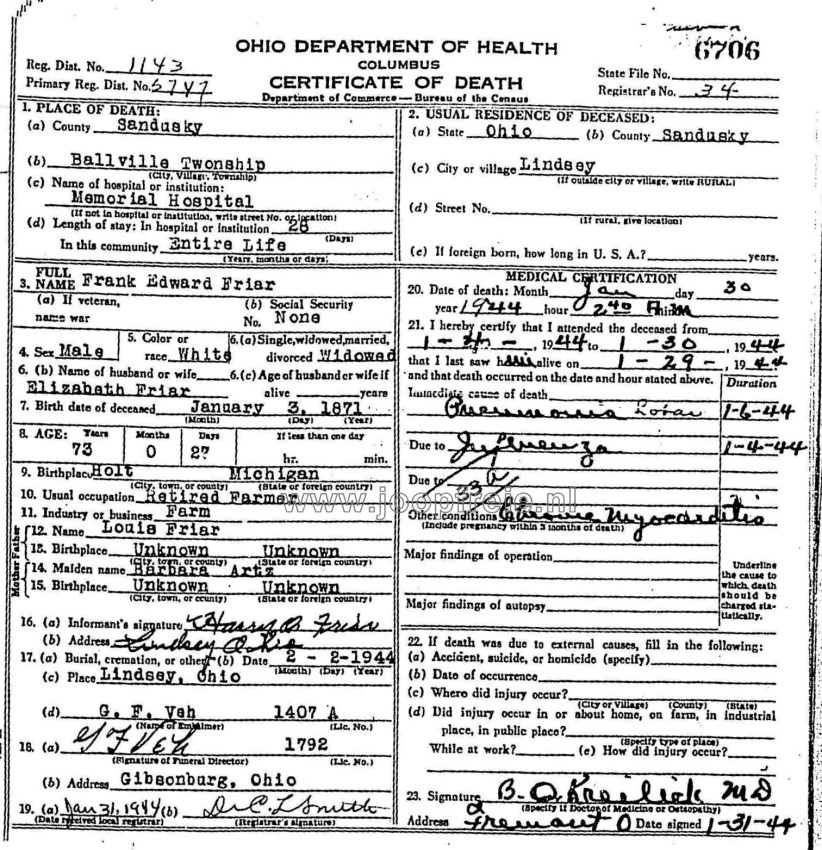 6706
OHIO DEPARTMENT OF HEALTH
COLUMBUS
CERTIFICATE OF DEATH
Department of Commerce — Bureau of the Census
Reg. Dist. No. 1143
Primary Reg. Dist. No. 5747
State File No.
Registrar's No. 34
1. PLACE OF DEATH:
(a) County Sandusky
(b) Ballville Twonship
(City, Village, Township)
(c) Name of hospital or institution:
Memorial Hospital
(If not in hospital or institution, write street No. or location)
(d) Length of stay: In hospital or institution 28
(Days)
In this community Entire Life
(Years, months or days)
2. USUAL RESIDENCE OF DECEASED:
(a) State Ohio (b) County Sandusky
(c) City or village Lindsey
(If outside city or village, write RURAL)
(d) Street No.
(If rural, give location)
(e) If foreign born, how long in U. S. A.? years.
3. FULL NAME Frank Edward Friar
(a) If veteran, name war
(b) Social Security No. None
4. Sex Male
5. Color or race White
6. (a) Single, widowed, married, divorced Widowed
6. (b) Name of husband or wife
Elizabeth Friar
6. (c) Age of husband or wife if alive years
7. Birth date of deceased January 3, 1871
(Month) (Day) (Year)
8. AGE: Years Months Days If less than one day
73 0 27 hr. min.
9. Birthplace Holt Michigan
(City, town, or county) (State or foreign country)
10. Usual occupation Retired Farmer
11. Industry or business Farm
Father
12. Name Louis Friar
13. Birthplace Unknown Unknown
(City, town, or county) (State or foreign country)
Mother
14. Maiden name Barbara Artz
15. Birthplace Unknown Unknown
(City, town, or county) (State or foreign country)
16. (a) Informant's signature Harry Friar
(b) Address Lindsey Ohio
17. (a) Burial, cremation, or other (b) Date 2 - 2-1944
(Month) (Day) (Year)
(c) Place Lindsey, Ohio
(d) G. F. Veh 1407 A
(Name of Embalmer) (Lic. No.)
18. (a) G F Veh 1792
(Signature of Funeral Director) (Lic. No.)
(b) Address Gibsonburg, Ohio
19. (a) Jan 31, 1944 (b) Dr C L Smith
(Date received local registrar) (Registrar's signature)
MEDICAL CERTIFICATION
20. Date of death: Month Jan day 30
year 1944 hour 2 40 A
21. I hereby certify that I attended the deceased from
1 - 4 - , 1944 to 1 - 30 , 1944
that I last saw him alive on 1 - 29 - , 1944
and that death occurred on the date and hour stated above.
Duration
Immediate cause of death
Pneumonia Lobar 1-6-44
Due to Influenza 1-4-44
Due to
33 a
Other conditions Chronic Myocarditis
(Include pregnancy within 3 months of death)
Major findings of operation
Major findings of autopsy
Underline the cause to which death should be charged statistically.
22. If death was due to external causes, fill in the following:
(a) Accident, suicide, or homicide (specify)
(b) Date of occurrence
(c) Where did injury occur?
(City or Village) (County) (State)
(d) Did injury occur in or about home, on farm, in industrial place, in public place?
(Specify type of place)
While at work? (e) How did injury occur?
23. Signature B. O. Kreilick M D
(Specify if Doctor of Medicine or Osteopathy)
Address Fremont O Date signed 1-31-44
www.joopfreie.nl